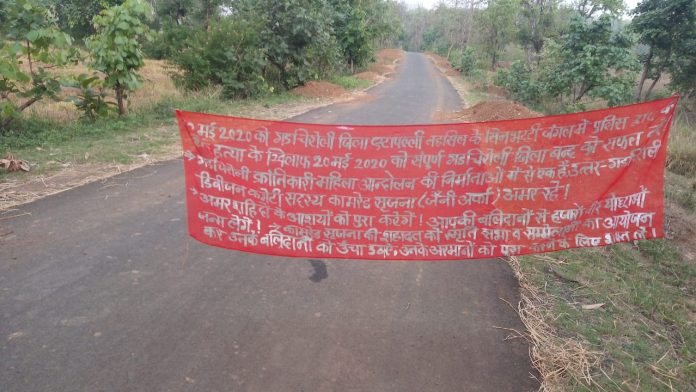 मई 2020 को गडचिरोली जिला एटापल्ली तहसिल के सिनभट्टी जंगल में पुलिस द्वारा
हत्या के खिलाफ 20 मई 2020 को संपूर्ण गडचिरोली जिला बन्द को सफल
गडचिरोली क्रांतिकारी महिला आन्दोलन की निर्माताओं में से एक हैं उत्तर-गडचिरोली
डिवीजन कमेटी सदस्य कामरेड सृजना (जैनी अर्का) अमर रहे !
अमर शहिदों के आशयों को पुरा करेंगे ! आपकी बलिदानों से हजारों वीर योद्धाओं
जन्म लेंगे ! कामरेड सृजना की शहादत की स्मृति सभा व सम्मेलनों का आयोजन
कर उनके बलिदानों को ऊँचा उठाएं, उनके अरमानों को पुरा करने के लिए शपत लें !